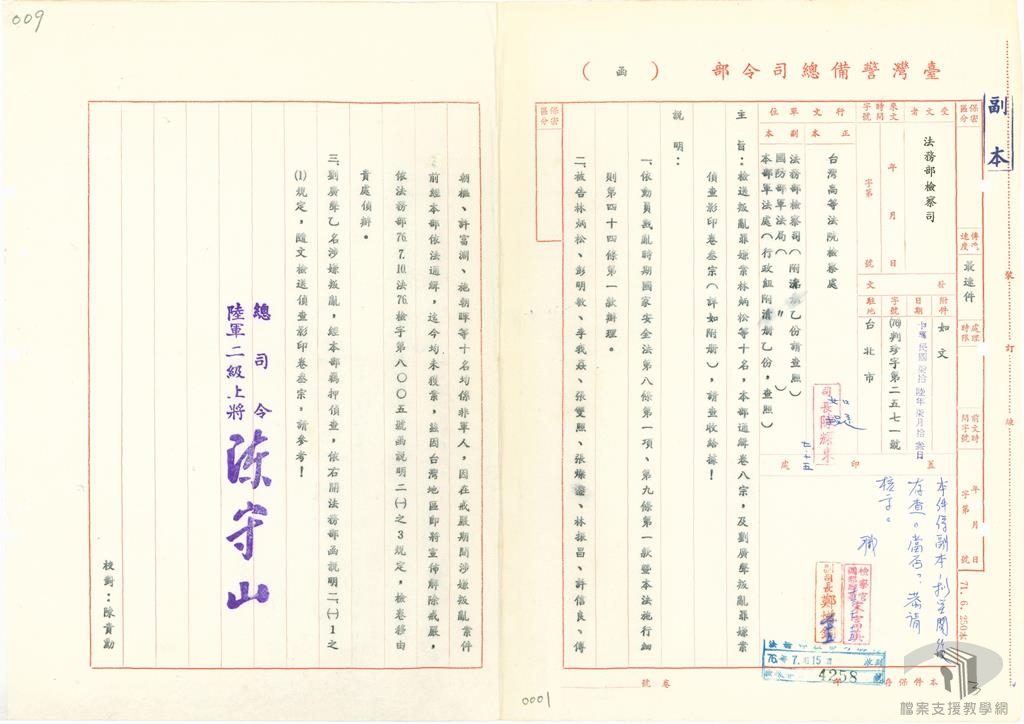 009
臺灣警備總司令部（函）
副本
保密區分
受文者
法務部檢察司
來文時間字號
年 月 日
字第 號
行文單位
正本
台灣高等法院檢察處
副本
法務部檢察司（附清冊乙份請查照）
國防部軍法局（ 〃 ）
本部軍法處（行政組附清冊乙份，查照）
傳遞速度
最速件
處理時限
前文時間字號
年 月 日
字第 號
發文
附件
如文
日期
中華民國柒拾陸年柒月拾參日
字號
(76)判珍字第二五七一號
駐地
台北市
蓋印處
司長陳耀東
七、十五
本件係副本，
核示。
職
71.6.250本
裝 訂 線
主旨：檢送叛亂罪嫌案林炳松等十名，本部通緝卷八宗，及劉廣聲叛亂罪嫌案
偵查影印卷叁宗（詳如附冊），請查收給據！
說明：
一、依動員戡亂時期國家安全法第八條第一項、第九條第一款暨本法施行細
則第四十四條第一款辦理。
二、被告林炳松、彭明敏、李我焱、張雙照、張燦鍙、林振昌、許信良、傅
法務部
76年7月15日
4258
本件保存 年
卷 號
0001
保密區分
朝樞、許富淵、施朝暉等十名均係非軍人，因在戒嚴期間涉嫌叛亂案件
前經本部依法通緝，迄今均未獲案，茲因台灣地區即將宣佈解除戒嚴，
依法務部76.7.10.法76.檢字第八〇〇五號函說明二(一)之3規定，檢卷移由
貴處偵辦。
三、劉廣聲乙名涉嫌叛亂，經本部羈押偵查，依右開法務部函說明二、(一)1之
(1)規定，隨文檢送偵查影印卷叁宗，請參考！
總司令
陸軍二級上將 陳守山
校對：陳貴勤
檔案支援教學網